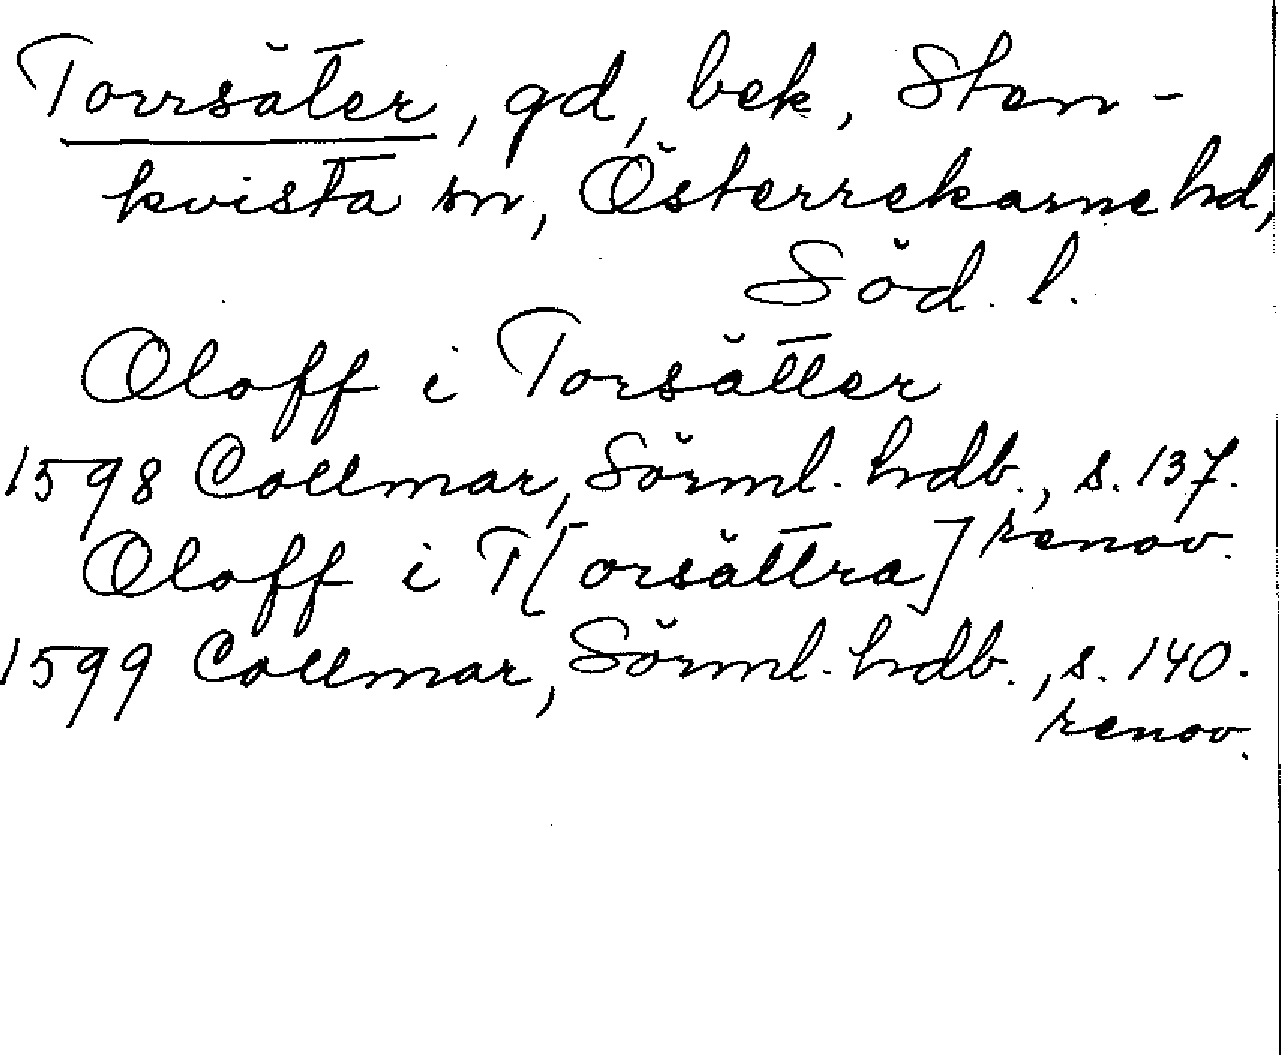 Torrsäter, gd, bek, Sten-
kvista sn, Österrekarne hd,
Söd. l.
Oloff i Torsätter
1598 Collmar, Sörml. hdb., s. 137.
renov.
Oloff i T[orsättra]
1599 Collmar, Sörml. hdb., s. 140.
renov.